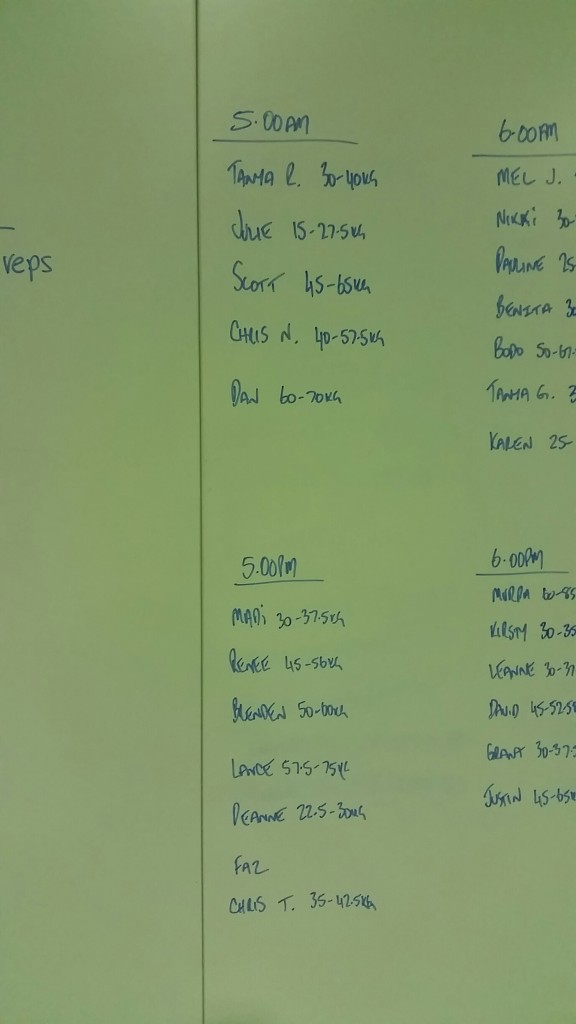 reps
5.00AM
TANYA R. 30-40KG
JULIE 15-27.5KG
SCOTT 45-65KG
CHRIS N. 40-57.5KG
DAN 60-70KG
6.00AM
MEL J.
NIKKI 30-
PAULINE 25
BENITA 30
BODO 50-67.
TANYA G. 3
KAREN 25-
5.00PM
MADI 30-37.5KG
RENEE 45-50KG
BRENDEN 50-60KG
LANCE 57.5-75KG
DEANNE 22.5-30KG
FAZ
CHRIS T. 35-42.5KG
6.00PM
60-85
KIRSTY 30-35
LEANNE 30-37
DAVID 45-52.5K
GRANT 30-37.5
JUSTIN 45-65K